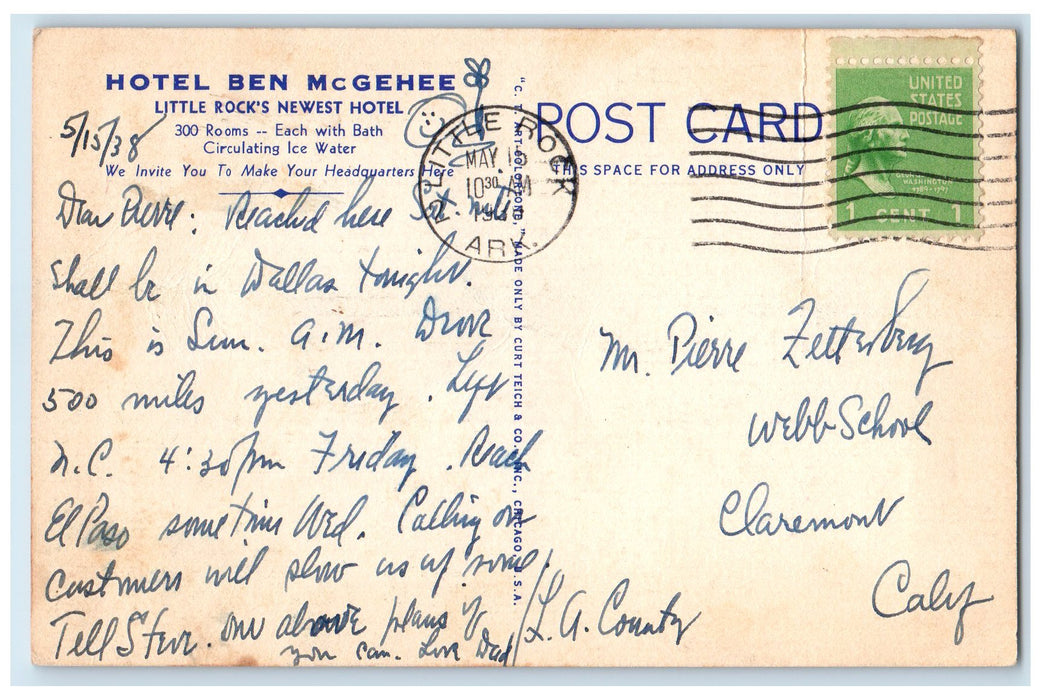 HOTEL BEN McGEHEE
LITTLE ROCK'S NEWEST HOTEL
300 Rooms -- Each with Bath
Circulating Ice Water
We Invite You To Make Your Headquarters Here
5/15/38
Dear Pierre: Reached here Sat. nite
Shall be in Dallas tonight.
This is Sun. a.m. Drove
500 miles yesterday. Left
N.C. 4:30 pm Friday. Reach
El Paso sometime Wed. Calling on
customers will slow us up some.
Tell Steve. our above plans if
you can. Love Dad
"C. T. ART-COLORTONE," MADE ONLY BY CURT TEICH & CO., INC., CHICAGO, U.S.A.
POST CARD
THIS SPACE FOR ADDRESS ONLY
LITTLE ROCK
MAY 15
10 30 AM
1938
ARK.
UNITED
STATES
POSTAGE
GEORGE
WASHINGTON
1789-1797
1 CENT 1
Mr. Pierre Zetterberg
Webb School
Claremont
L.A. County
Calif